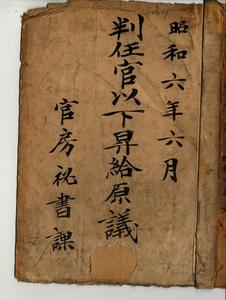 昭和六年六月
判任官以下昇給原議
官房祕書課